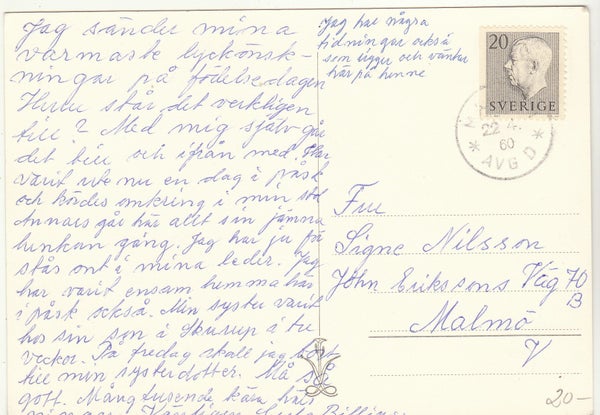 Jag sänder mina
varmaste lyckönsk-
ningar på födelsedagen
Huru står det verkligen
till? Med mig själv går
det till och ifrån med. Har
varit ute nu en dag i påsk
och kördes omkring i min stol
Annars går här allt sin jämna
lunkan gång. Jag har ju för
stås ont i mina leder. Jag
har varit ensam hemma här
i påsk också. Min syster varit
hos sin son i Skurup i tre
veckor. På fredag skall jag bort
till min systerdotter. Må så
gott. Mångtusende, kära här
Jag har några
tidningar också
som ligger och väntar
här på henne
20
SVERIGE
22 4.
60
* AVG D *
Fru
Signe Nilsson
John Erikssons Väg 70
B
Malmö
V
20-